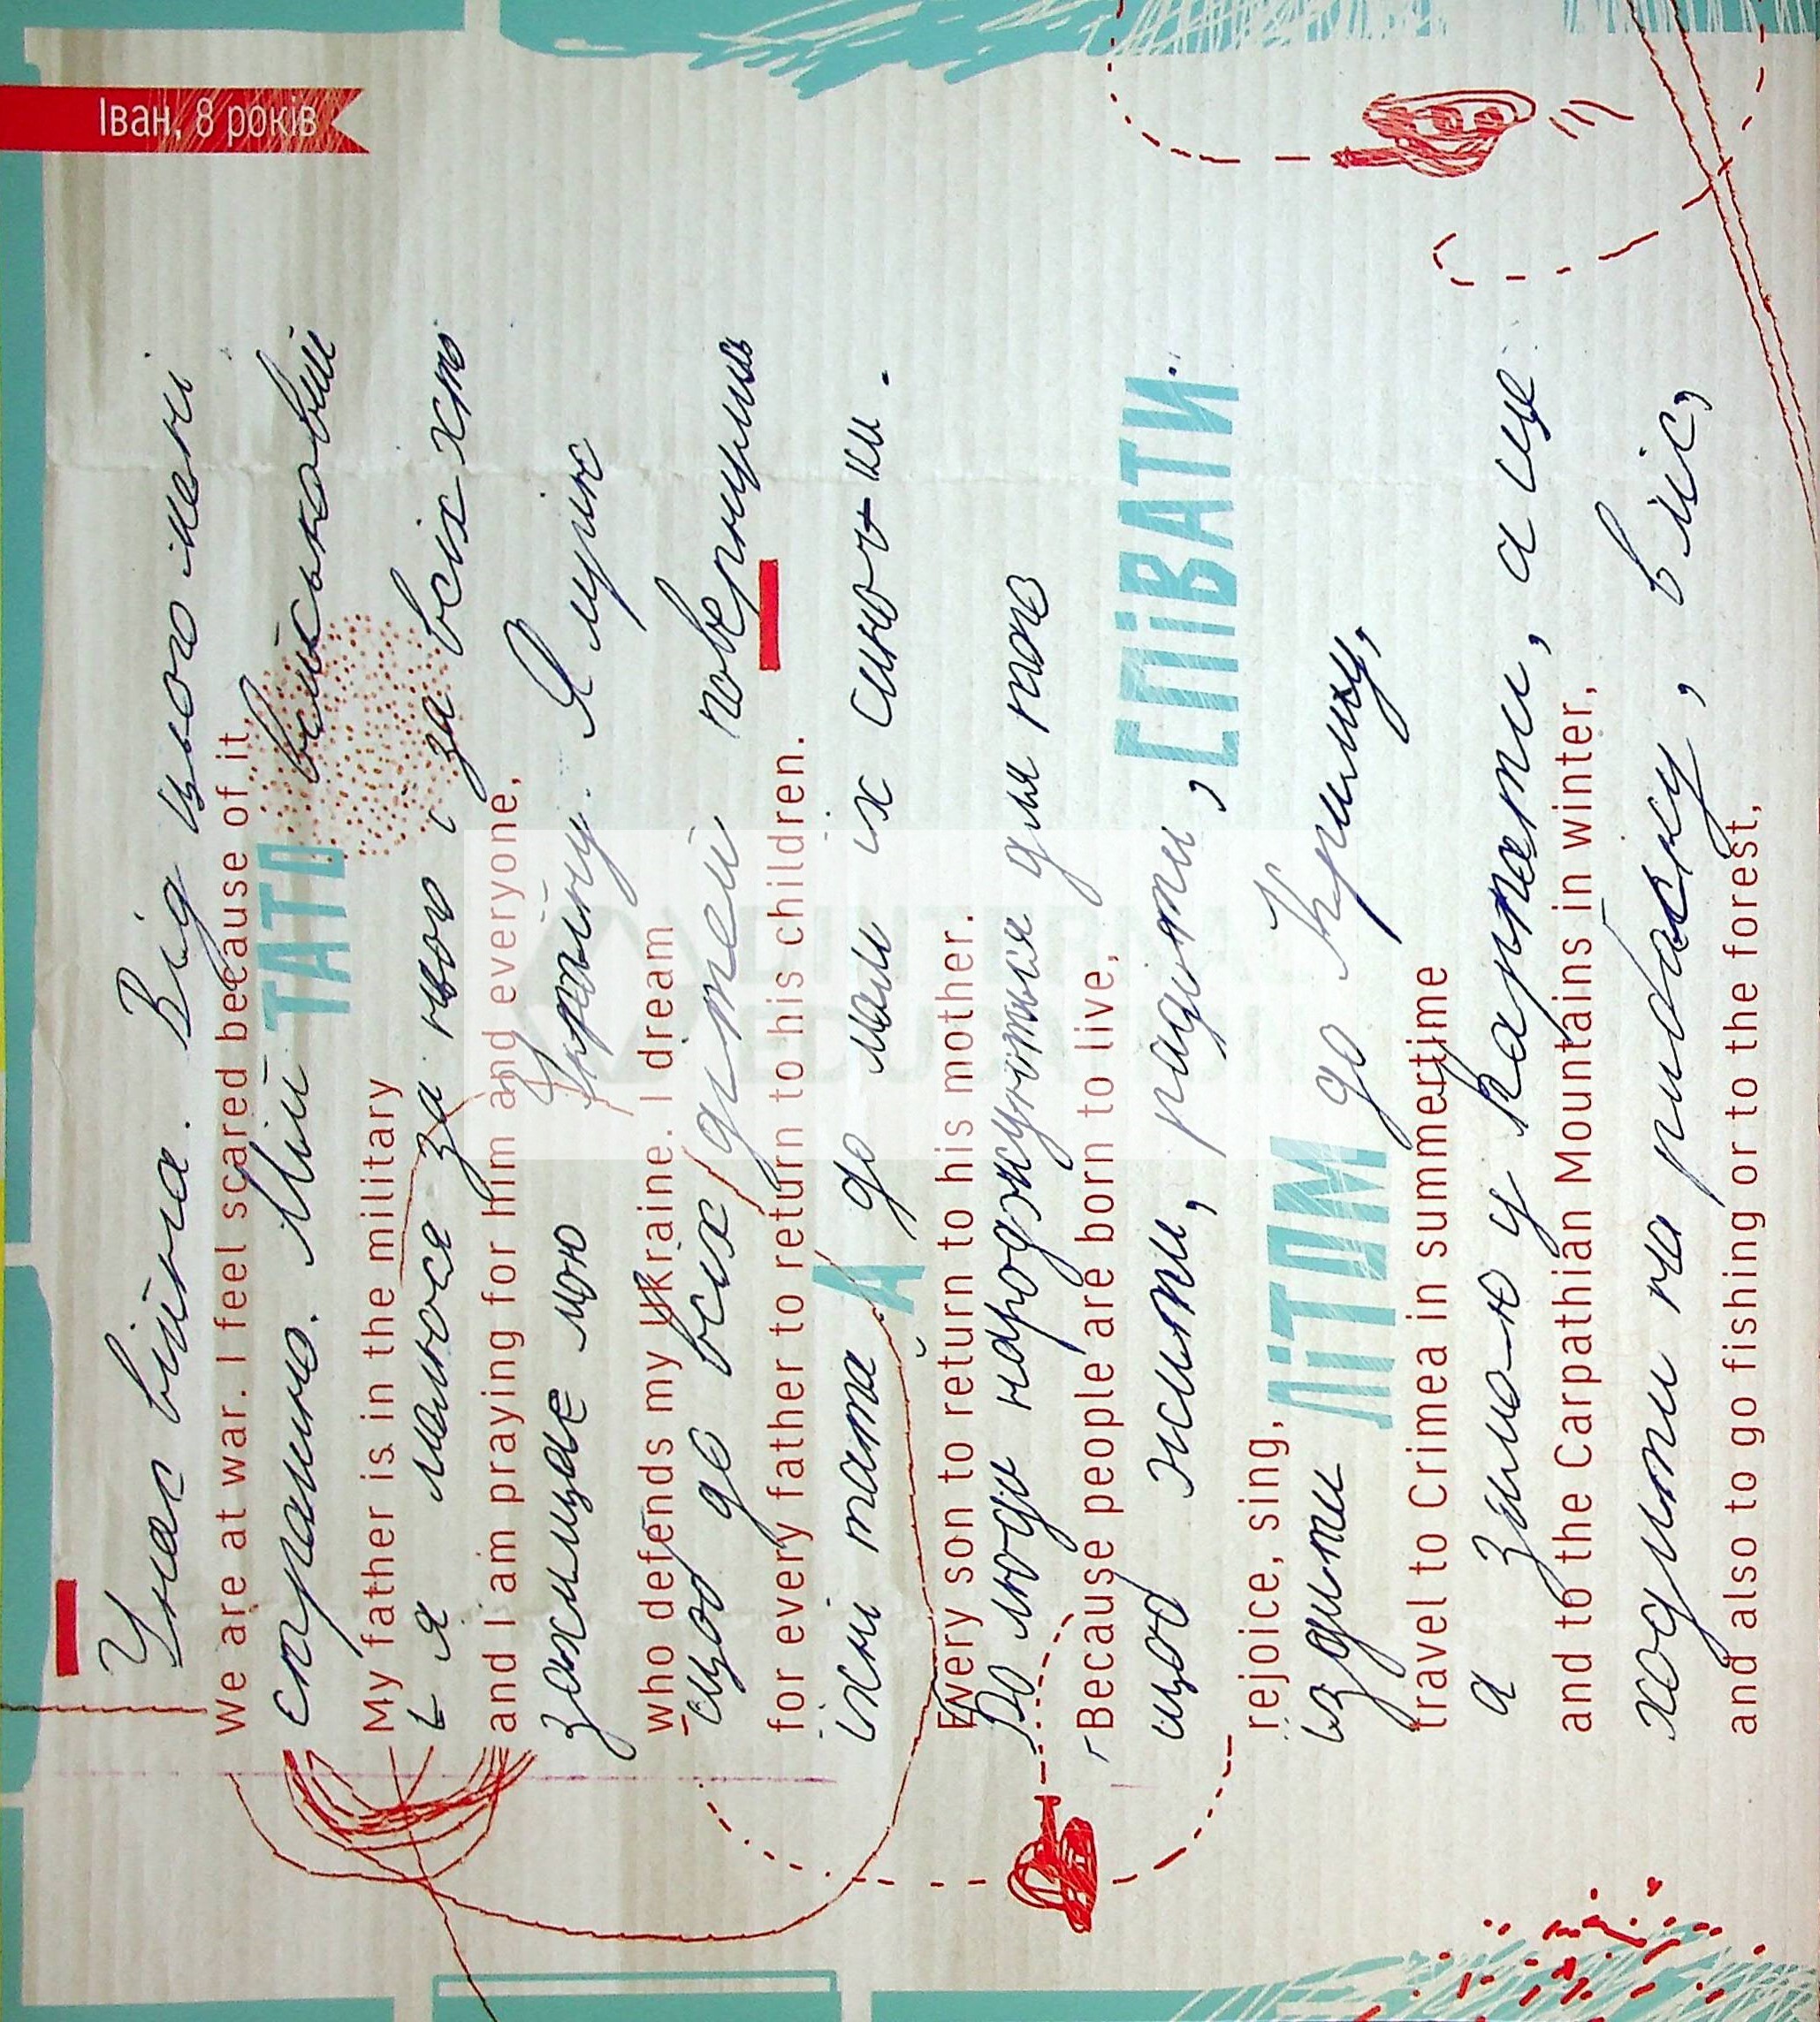 Іван, 8 років
Унас війна. Від цього мені
We are at war. I feel scared because of it.
страшно. Мій ТАТО військовий
My father is in the military
і я молюся за ного і за всіх хто
and I am praying for him and everyone,
захищає мою Україну. Я мрію
who defends my Ukraine. I dream
щоб до всіх дітей повернулись
for every father to return to his children.
їхні тата А до мами їх сино-ч-ки.
Every son to return to his mother.
Бо люди народжуються для того
Because people are born to live,
щоб жити, радіти, СПІВАТИ.
rejoice, sing,
їздити ЛІТОМ до Криму,
travel to Crimea in summertime
а зимою у Карпати, а ще
and to the Carpathian Mountains in winter,
ходити на рибалку, в ліс,
and also to go fishing or to the forest,